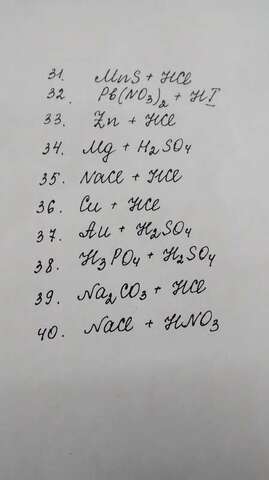 31. MnS + HCl
32. Pb(NO3)2 + HI
33. Zn + HCl
34. Mg + H2SO4
35. NaCl + HCl
36. Cu + HCl
37. Au + H2SO4
38. H3PO4 + H2SO4
39. Na2CO3 + HCl
40. NaCl + HNO3